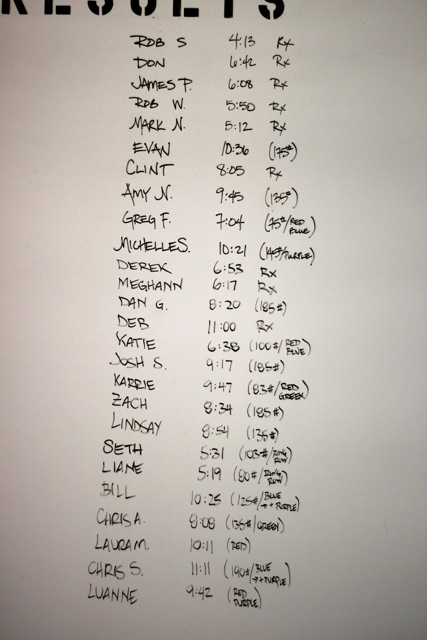 RESULTS
ROB S 4:13 Rx
DON 6:42 Rx
JAMES P. 6:08 Rx
ROB W. 5:50 Rx
MARK N. 5:12 Rx
EVAN 10:36 (175#)
CLINT 8:05 Rx
AMY N. 9:45 (135#)
GREG F. 7:04 (75#/RED BLUE)
MICHELLE S. 10:21 (145#/PURPLE)
DEREK 6:53 Rx
MEGHANN 6:17 Rx
DAN G. 8:20 (185#)
DEB 11:00 Rx
KATIE 6:38 (100#/RED BLUE)
JOSH S. 9:17 (185#)
KARRIE 9:47 (83#/RED GREEN)
ZACH 8:34 (185#)
LINDSAY 8:54 (135#)
SETH 5:31 (103#/RING ROW)
LIANE 5:19 (80#/RING ROW)
BILL 10:25 (125#/BLUE ++PURPLE)
CHRIS A. 8:08 (135#/GREEN)
LAURA M. 10:11 (RED)
CHRIS S. 11:11 (190#/BLUE ++PURPLE)
LUANNE 9:42 (RED PURPLE)